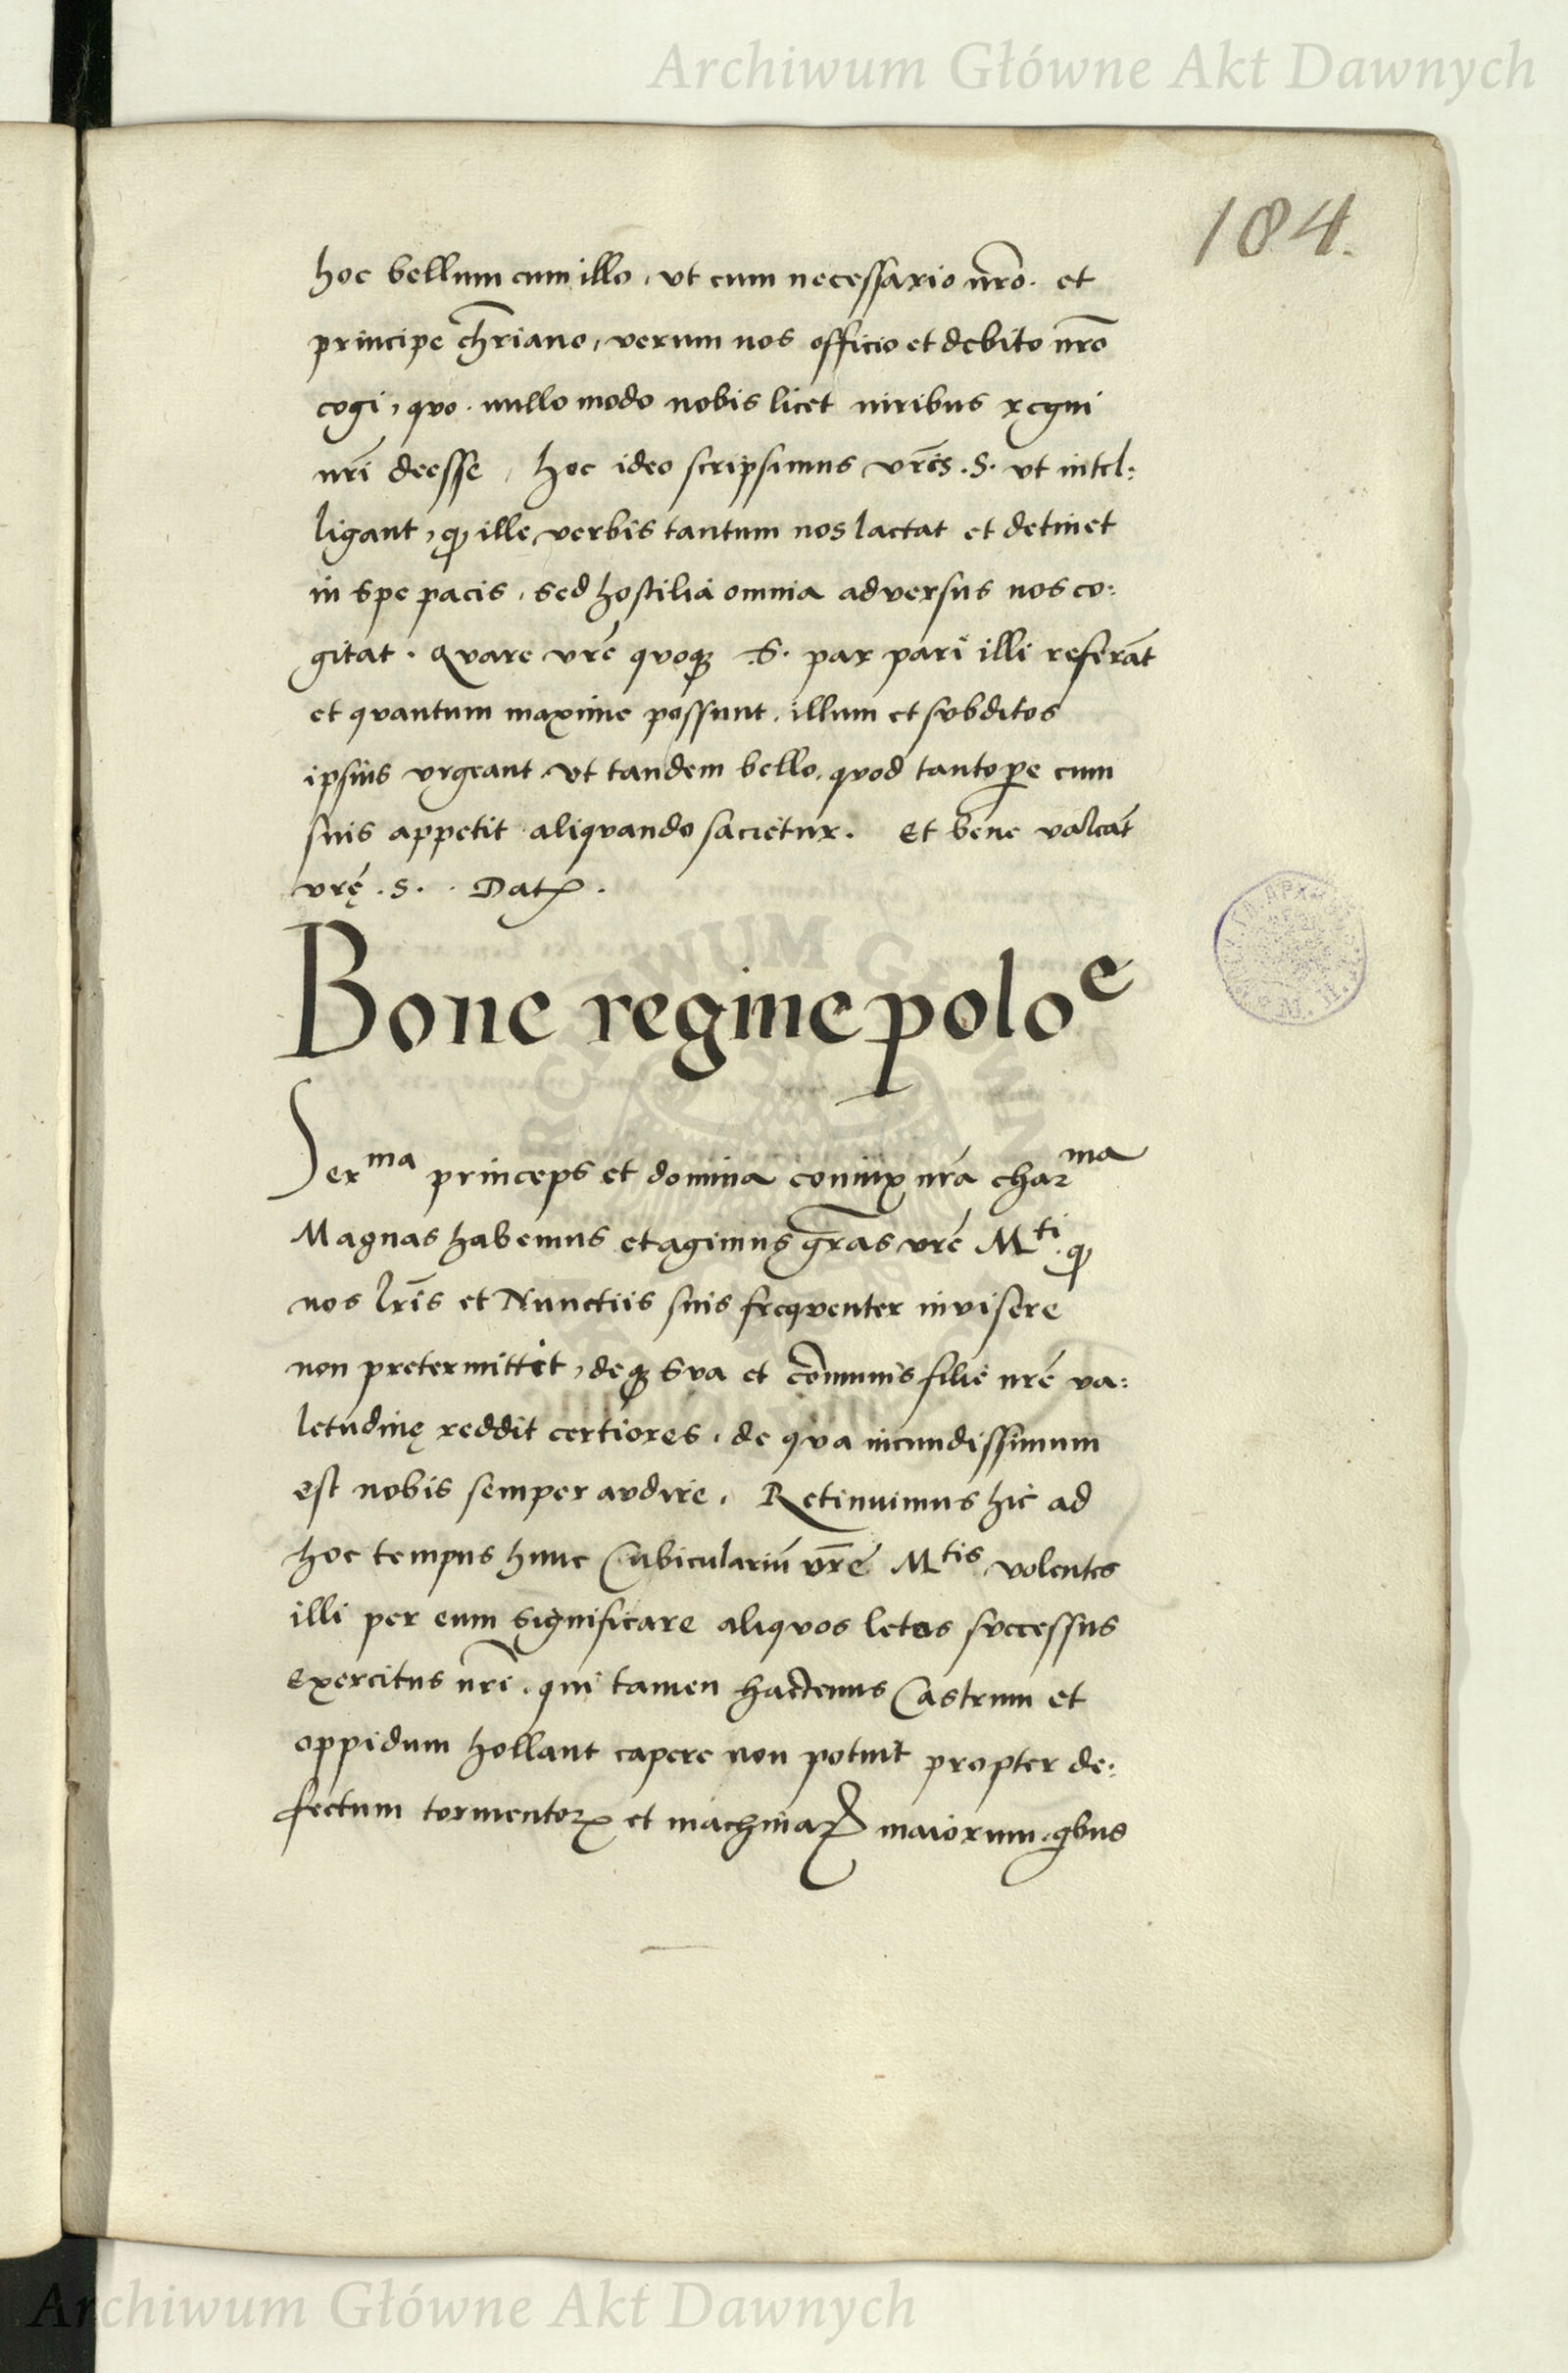 Archiwum Główne Akt Dawnych
184.
hoc bellum cum illo, vt cum necessario nr̄o. et
principe chr̄iano, verum nos officio et debito nr̄o
cogi, quo. nullo modo nobis licet iuribus regni
nr̄i deesse, hoc ideo scripsimus vr̄is .S. vt intel:
ligant, qꝫ ille verbis tantum nos lactat et detinet
in spe pacis, sed hostilia omnia adversus nos co:
gitat. Qvare vr̄e qvoqꝫ .S. par pari illi referāt
et qvantum maxime possunt, illum et svbditos
ipsius vrgeant vt tandem bello, qvod tantoꝑe cum
suis appetit aliqvando sacietur. Et bene valeāt
vr̄ę .S. Datꝭ.
Bone regine poloᵉ
Serᵐᵃ princeps et domina coniux nr̄a charᵐᵃ
Magnas habemus et agimus gr̄as vr̄e Mᵗⁱ. qꝫ
nos lr̄is et Nunctiis suis freqventer invisere
non pretermittit, deqꝫ sva et cōmunis filie nr̄e va:
letudinę reddit certiores, de qva iucundissimum
est nobis semper avdire. Retinuimus hic ad
hoc tempus hunc Cubiculariū vr̄e Mᵗⁱˢ volentes
illi per eum significare aliqvos letos svccessus
exercitus nr̄i, qui tamen hactenus Castrum et
oppidum hollant capere non potuit propter de:
fectum tormentoꝝ et machinaꝝ maiorum, qbus
Archiwum Główne Akt Dawnych